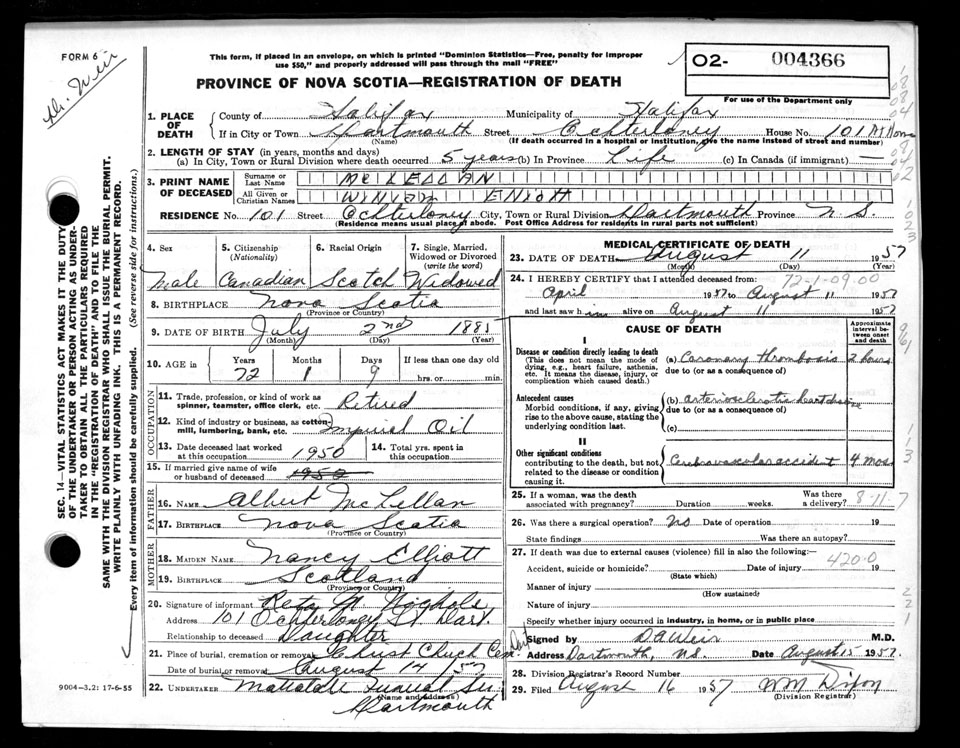 FORM 6
Dr. Weir
This form, if placed in an envelope, on which is printed "Dominion Statistics—Free, penalty for improper
use $50," and properly addressed will pass through the mail "FREE"
PROVINCE OF NOVA SCOTIA—REGISTRATION OF DEATH
02- 004366
For use of the Department only
1. PLACE OF DEATH
County of Halifax Municipality of Halifax
If in City or Town Dartmouth Street Ochterloney House No. 101 At Home
(Name) (If death occurred in a hospital or institution, give the name instead of street and number)
2. LENGTH OF STAY (in years, months and days)
(a) In City, Town or Rural Division where death occurred 5 years (b) In Province Life (c) In Canada (if immigrant) —
3. PRINT NAME OF DECEASED
Surname or Last Name
All Given or Christian Names
RESIDENCE No. 101 Street Ochterloney City, Town or Rural Division Dartmouth Province N. S.
(Residence means usual place of abode. Post Office Address for residents in rural parts not sufficient)
4. Sex
Male
5. Citizenship
(Nationality)
Canadian
6. Racial Origin
Scotch
7. Single, Married, Widowed or Divorced
(write the word)
Widowed
8. BIRTHPLACE Nova Scotia
(Province or Country)
9. DATE OF BIRTH July 2nd 1885
(Month) (Day) (Year)
10. AGE in Years Months Days If less than one day old
72 1 9 hrs. or min.
OCCUPATION
11. Trade, profession, or kind of work as
spinner, teamster, office clerk, etc. Retired
12. Kind of industry or business, as cotton-
mill, lumbering, bank, etc. Imperial Oil
13. Date deceased last worked
at this occupation 1950
14. Total yrs. spent in
this occupation
15. If married give name of wife
or husband of deceased 1950
FATHER
16. NAME Albert McLellan
17. BIRTHPLACE Nova Scotia
(Province or Country)
MOTHER
18. MAIDEN NAME Nancy Elliott
19. BIRTHPLACE Scotland
(Province or Country)
20. Signature of informant Reta M. Nichols
Address 101 Ochterloney St. Dart.
Relationship to deceased Daughter
21. Place of burial, cremation or removal Christ Church Cem Dart
Date of burial or removal August 14/57
22. UNDERTAKER Funeral Ser.
(Name and Address)
Dartmouth
MEDICAL CERTIFICATE OF DEATH
23. DATE OF DEATH August 11 1957
(Month) (Day) (Year)
24. I HEREBY CERTIFY that I attended deceased from:
72-1-09.00
April 1957 to August 11 1957
and last saw him alive on August 11 1957
CAUSE OF DEATH
Approximate interval between onset and death
I
Disease or condition directly leading to death
(This does not mean the mode of
dying, e.g., heart failure, asthenia,
etc. It means the disease, injury, or
complication which caused death.)
(a) Coronary thrombosis 2 hours
due to (or as a consequence of)
Antecedent causes
Morbid conditions, if any, giving
rise to the above cause, stating the
underlying condition last.
(b) arteriosclerotic heart disease
due to (or as a consequence of)
(c)
II
Other significant conditions
contributing to the death, but not
related to the disease or condition
causing it.
Cerebrovascular accident 4 mos
25. If a woman, was the death
associated with pregnancy? Duration weeks. Was there
a delivery?
8-11-7
26. Was there a surgical operation? No Date of operation 19
State findings Was there an autopsy?
27. If death was due to external causes (violence) fill in also the following:—
420.0
Accident, suicide or homicide? Date of injury 19
(State which)
Manner of injury
(How sustained)
Nature of injury
Specify whether injury occurred in industry, in home, or in public place
Signed by D A Weir M.D.
Address Dartmouth, N.S. Date August 15 1957
28. Division Registrar's Record Number
29. Filed August 16 1957 WM Dixon
(Division Registrar)
SEC. 14—VITAL STATISTICS ACT MAKES IT THE DUTY
OF THE UNDERTAKER OR PERSON ACTING AS UNDER-
TAKER TO OBTAIN ALL THE PARTICULARS REQUIRED
IN THE "REGISTRATION OF DEATH" AND TO FILE THE
SAME WITH THE DIVISION REGISTRAR WHO SHALL ISSUE THE BURIAL PERMIT.
WRITE PLAINLY WITH UNFADING INK. THIS IS A PERMANENT RECORD.
Every item of information should be carefully supplied. (See reverse side for instructions.)
9004-3.2: 17-6-55